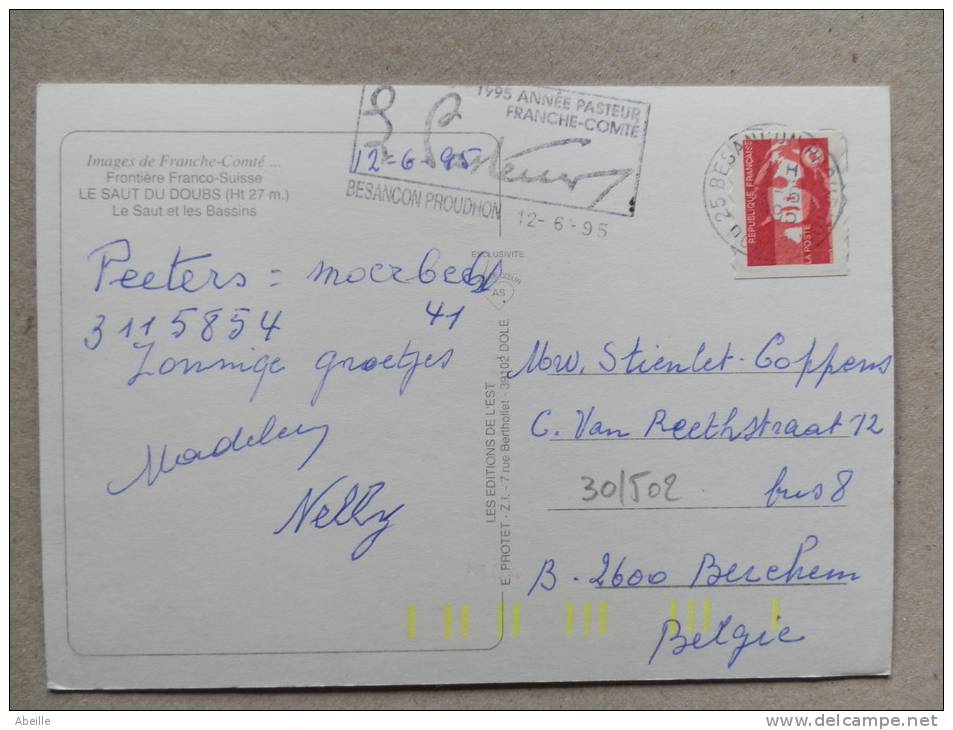 1995 ANNÉE PASTEUR
FRANCHE-COMTÉ
12-6-95
BESANCON PROUDHON
12-6-95
25 BESANCON
REPUBLIQUE FRANÇAISE
LA POSTE
Images de Franche-Comté ...
Frontière Franco-Suisse
LE SAUT DU DOUBS (Ht 27 m.)
Le Saut et les Bassins
EXCLUSIVITE
AS
Peeters = moerbeels
3115854 41
Zonnige groetjes
Madeley
Nelly
LES EDITIONS DE L'EST
E. PROTET - Z.I. - 7 rue Berthollet - 39102 DOLE
Mw. Stienlet-Coppens
C. Van Reethstraat 12
30/502 bus 8
B-2600 Berchem
Belgie
Abeille
www.delcampe.net